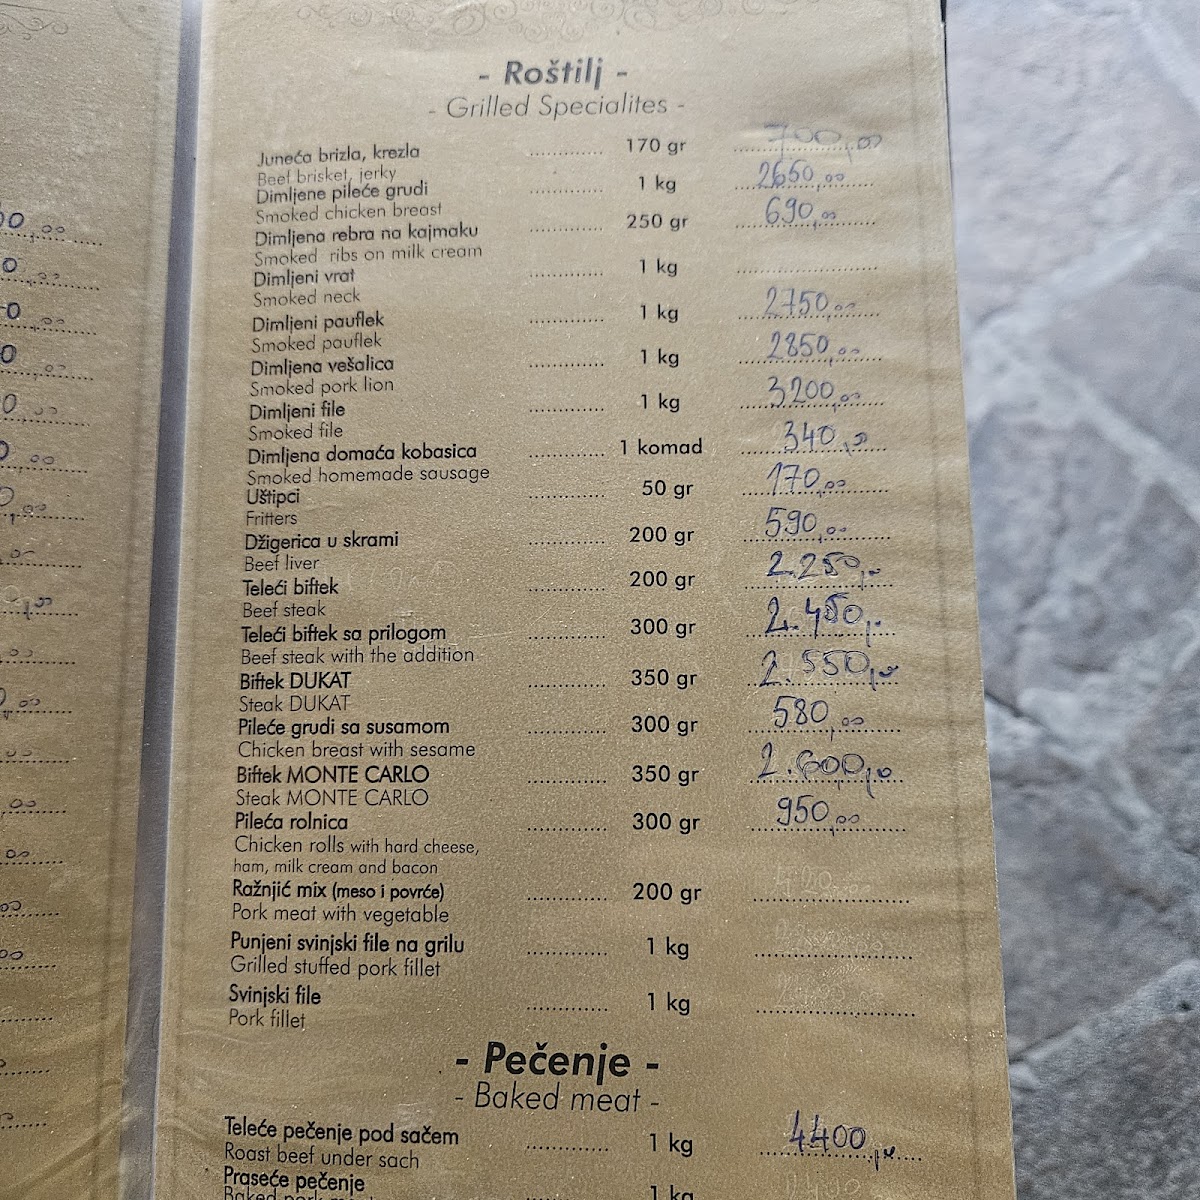 - Roštilj -
- Grilled Specialites -
Juneća brizla, krezla ............ 170 gr 700,00
Beef brisket, jerky
Dimljene pileće grudi ............ 1 kg 2650,00
Smoked chicken breast
Dimljena rebra na kajmaku ............ 250 gr 690,00
Smoked ribs on milk cream
Dimljeni vrat ............ 1 kg ............
Smoked neck
Dimljeni pauflek ............ 1 kg 2750,00
Smoked pauflek
Dimljena vešalica ............ 1 kg 2850,00
Smoked pork lion
Dimljeni file ............ 1 kg 3200,00
Smoked file
Dimljena domaća kobasica ............ 1 komad 340,00
Smoked homemade sausage
Uštipci ............ 50 gr 170,00
Fritters
Džigerica u skrami ............ 200 gr 590,00
Beef liver
Teleći biftek ............ 200 gr 2.250,-
Beef steak
Teleći biftek sa prilogom ............ 300 gr 2.450,-
Beef steak with the addition
Biftek DUKAT ............ 350 gr 2.550,00
Steak DUKAT
Pileće grudi sa susamom ............ 300 gr 580,00
Chicken breast with sesame
Biftek MONTE CARLO ............ 350 gr 2.600,00
Steak MONTE CARLO
Pileća rolnica ............ 300 gr 950,00
Chicken rolls with hard cheese,
ham, milk cream and bacon
Ražnjić mix (meso i povrće) ............ 200 gr ............
Pork meat with vegetable
Punjeni svinjski file na grilu ............ 1 kg ............
Grilled stuffed pork fillet
Svinjski file ............ 1 kg ............
Pork fillet
- Pečenje -
- Baked meat -
Teleće pečenje pod sačem ............ 1 kg 4400,00
Roast beef under sach
Praseće pečenje 1 kg
Baked pork